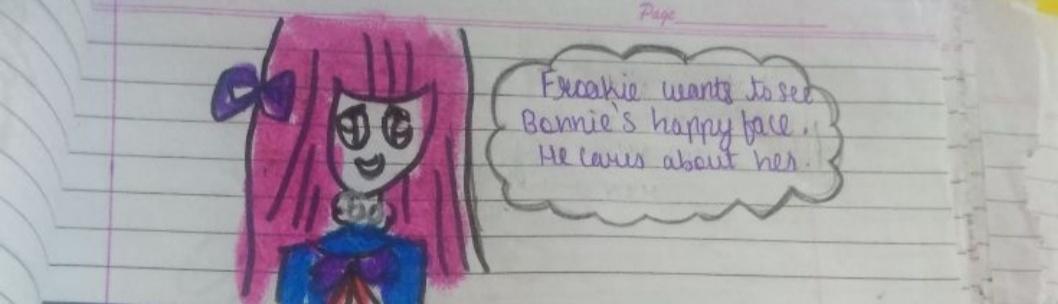 Page
Froakie wants to see
Bonnie's happy face.
He cares about her.